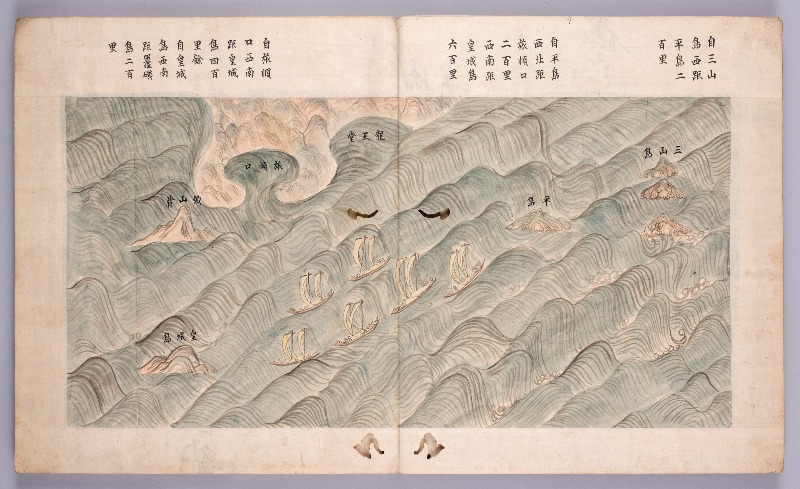 自三山
島西距
平島二
百里
自平島
西北距
旅順口
二百里
西南距
皇城島
六百里
自旅順
口西南
距皇城
島四百
里餘
自皇城
島西南
距鼉磯
島二百
里
三山島
平島
龍王堂
旅順口
鐵山
皇城島